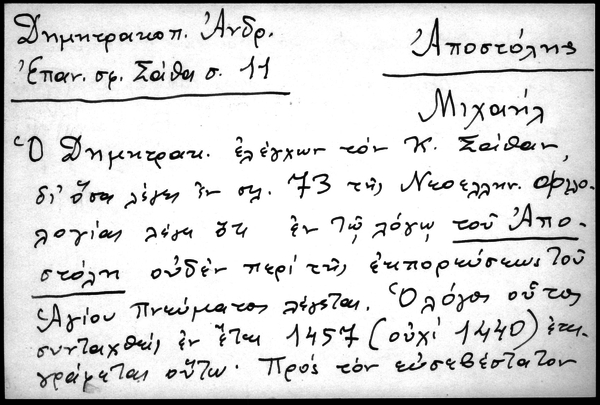 Δημητρακοπ. Ἀνδρ.
Ἐπαν. σφ. Σάθα σ. 11
Ἀποστόλης
Μιχαήλ
Ὁ Δημητρακ. ἐλέγχων τὸν Κ. Σάθαν,
δι' ὅσα λέγει ἐν σελ. 73 τῆς Νεοελλην. φιλο-
λογίας λέγει ὅτι ἐν τῷ λόγῳ τοῦ Ἀπο-
στόλη οὐδὲν περὶ τῆς ἐκπορεύσεως τοῦ
Ἁγίου Πνεύματος λέγεται. Ὁ λόγος οὗτος
συνταχθεὶς ἐν ἔτει 1457 (οὐχὶ 1440) ἐπι-
γράφεται οὕτω· Πρὸς τὸν εὐσεβέστατον